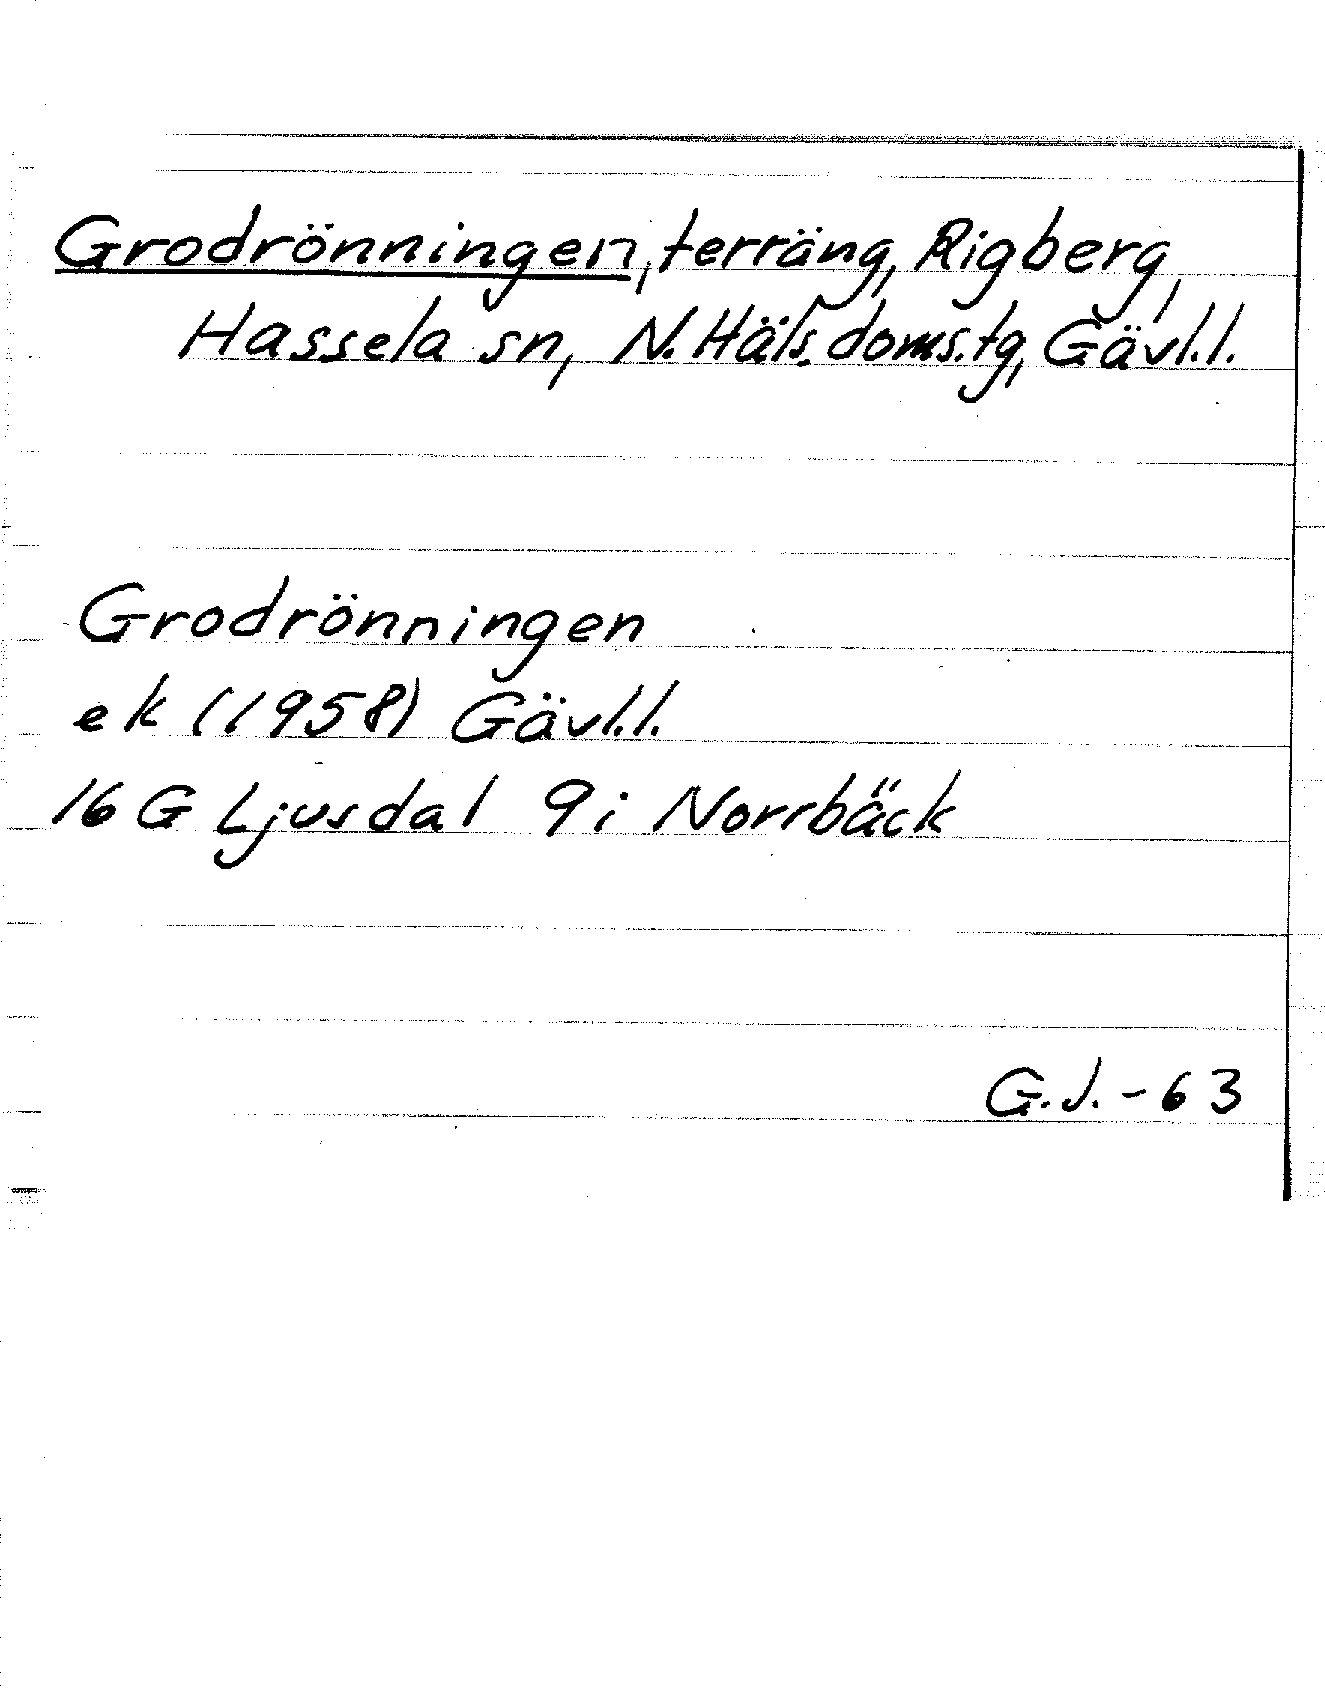 Grodrönningen, terräng, Rigberg,
Hassela sn, N. Häls. doms.tg, Gävl.l.
Grodrönningen
ek (1958) Gävl.l.
16 G Ljusdal 9i Norrbäck
G.J. - 63